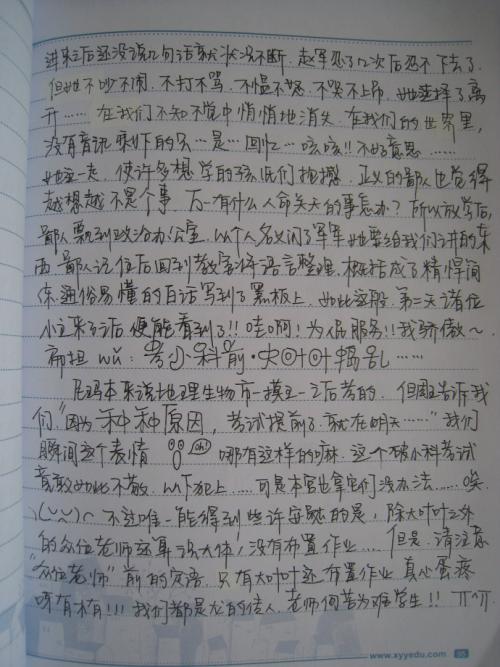 进来之后还没说几句话就状况不断. 赵军忍了几次后忍不下去了.
但她不吵不闹. 不打不骂. 不愠不怒. 不哭不上吊. 她选择了离
开…… 在我们不知不觉中悄悄地消失. 在我们的世界里,
没有音讯 剩下的只…是… 回忆… 咳咳!! 不好意思……
她这一走. 使许多想学的孩纸们 也觉得
越想越不是个事. 万一有什么人命关天的事怎办? 所以放学后,
鄙人飘到政治办公室. 以个人名义问了军军她要给我们讲的东
西. 鄙人记住后回到教室将语言整理. 概括成了精悍简
练通俗易懂的白话写到了黑板上. 如此这般. 第二天诸位
小主来了之后便能看到了!! 哇啊! 为人民服务!! 我骄傲~
第四担 wǔ: 考小科前·大叶叶捣乱……
尼玛本来说地理生物市一模之后考的. 但国王告诉我
们 "因为种种原因, 考试提前了. 就在明天……" 我们
瞬间这个表情 oh! 哪有这样的嘛. 这个破小科考试
竟敢如此不敬. 以下犯上…… 可是本宫也拿它们没办法…… 唉.
不过唯一能得到些许安慰的是, 除大叶叶之外
的众位老师还算识大体, 没有布置作业…. 但是. 请注意
"众位老师" 前的定语. 只有大叶叶还布置作业 真心蛋疼
呀有木有!!! 我们都是龙的传人. 老师何苦为难学生!! TT^TT
www.xyyedu.com 95